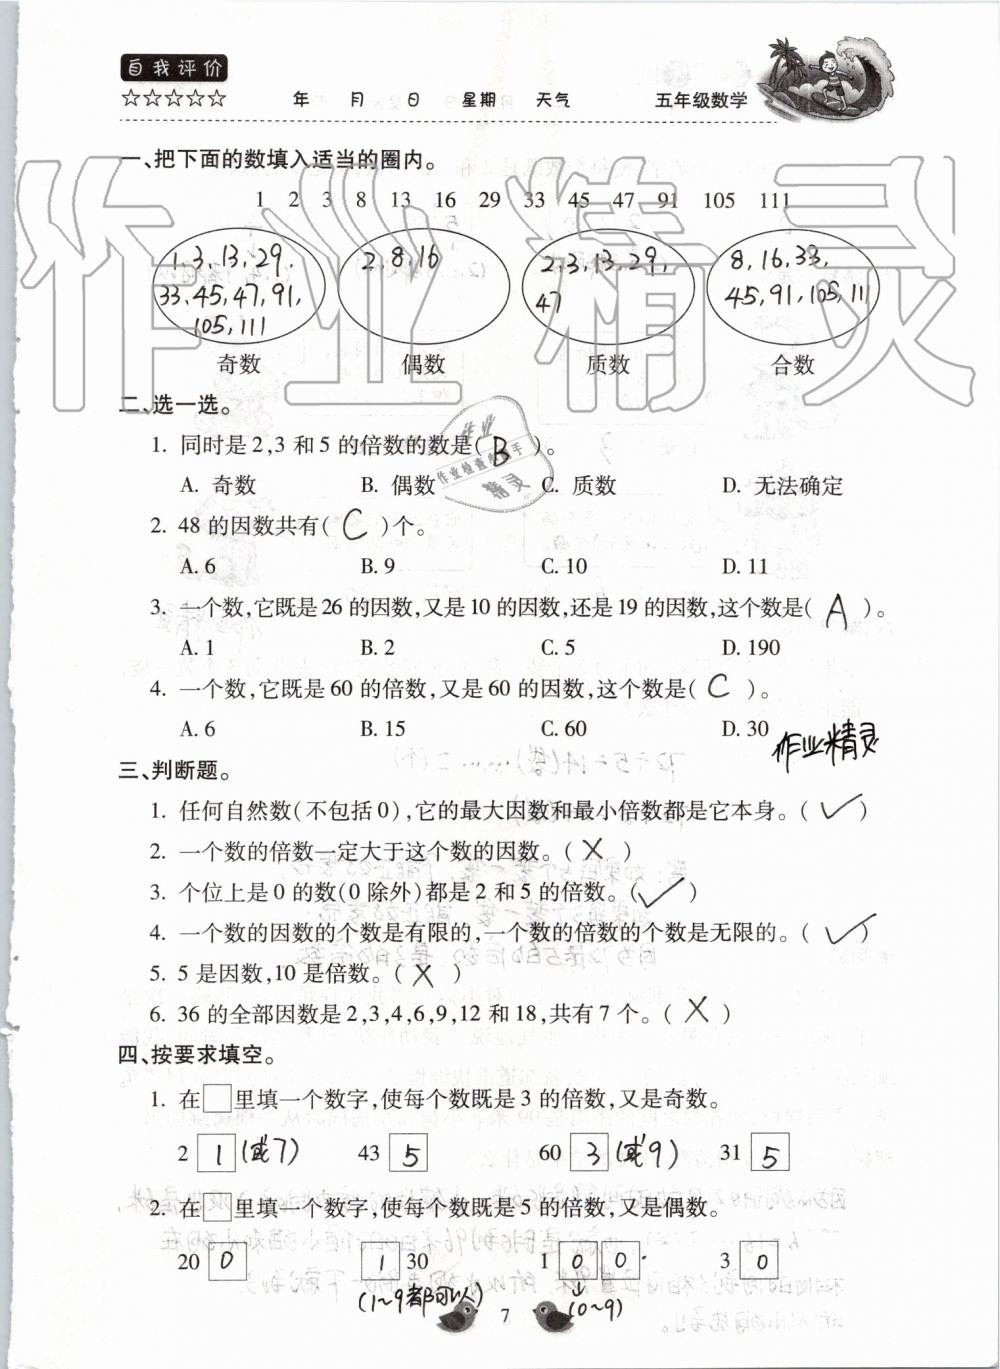 自我评价
☆☆☆☆☆ 年 月 日 星期 天气 五年级数学
一、把下面的数填入适当的圈内。
1 2 3 8 13 16 29 33 45 47 91 105 111
1,3,13,29, 2,8,16 2,3,13,29, 8,16,33,
33,45,47,91, 47 45,91,105,111
105,111
奇数 偶数 质数 合数
二、选一选。
1. 同时是2,3和5的倍数的数是( B )。
A. 奇数 B. 偶数 C. 质数 D. 无法确定
2. 48的因数共有( C )个。
A. 6 B. 9 C. 10 D. 11
3. 一个数,它既是26的因数,又是10的因数,还是19的因数,这个数是( A )。
A. 1 B. 2 C. 5 D. 190
4. 一个数,它既是60的倍数,又是60的因数,这个数是( C )。
A. 6 B. 15 C. 60 D. 30
作业精灵
三、判断题。
1. 任何自然数(不包括0),它的最大因数和最小倍数都是它本身。( ✓ )
2. 一个数的倍数一定大于这个数的因数。( X )
3. 个位上是0的数(0除外)都是2和5的倍数。( ✓ )
4. 一个数的因数的个数是有限的,一个数的倍数的个数是无限的。( ✓ )
5. 5是因数,10是倍数。( X )
6. 36的全部因数是2,3,4,6,9,12和18,共有7个。( X )
四、按要求填空。
1. 在□里填一个数字,使每个数既是3的倍数,又是奇数。
2 1 (或7) 43 5 60 3 (或9) 31 5
2. 在□里填一个数字,使每个数既是5的倍数,又是偶数。
20 0 1 30 1 0 0 3 0
(1~9都可以) (0~9)
7
作业精灵
作业
作业检查小助手
精灵